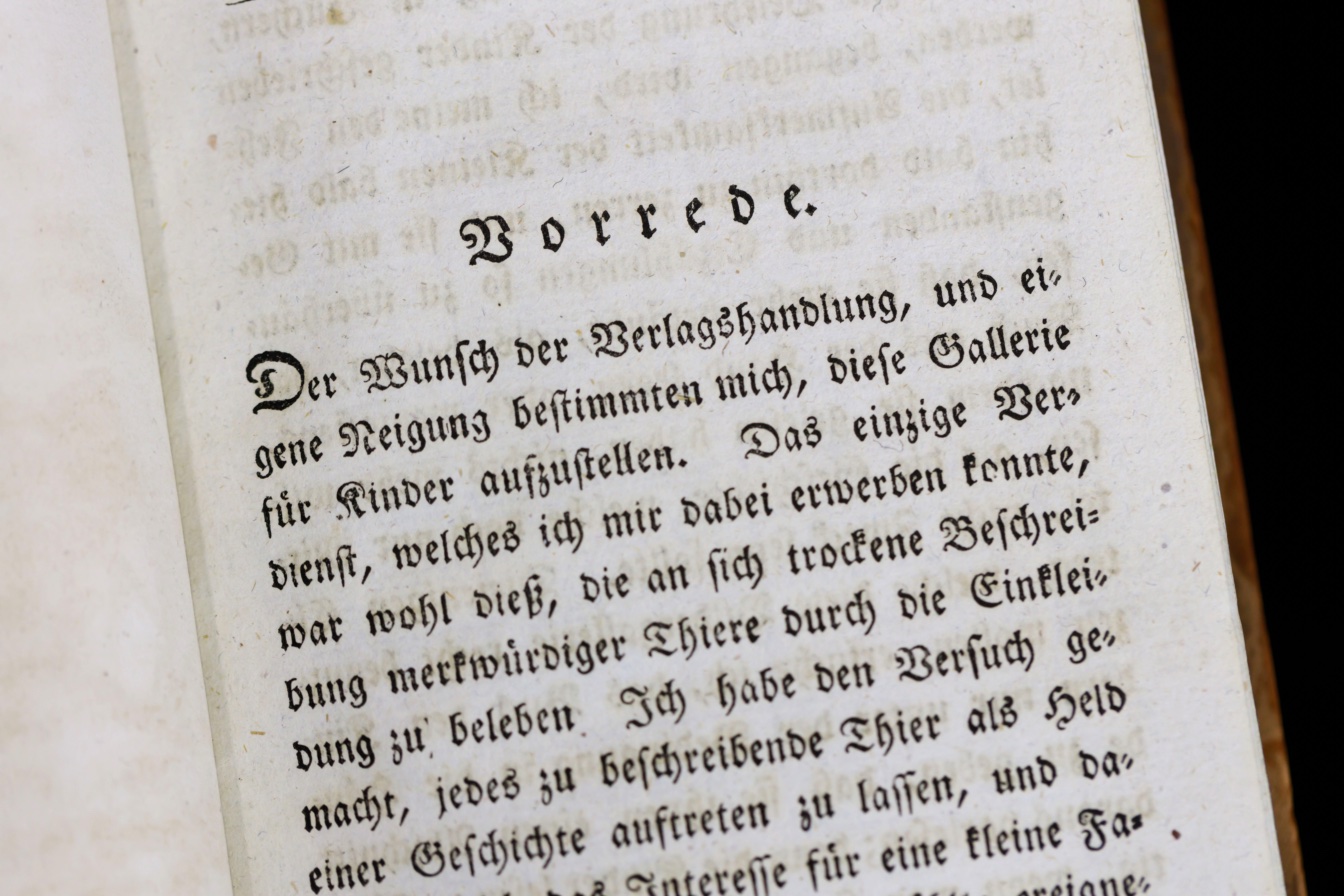 Vorrede.
Der Wunſch der Verlagshandlung, und ei⸗
gene Neigung beſtimmten mich, dieſe Gallerie
für Kinder aufzuſtellen. Das einzige Ver⸗
dienſt, welches ich mir dabei erwerben konnte,
war wohl dieß, die an ſich trockene Beſchrei⸗
bung merkwürdiger Thiere durch die Einklei⸗
dung zu beleben. Ich habe den Verſuch ge⸗
macht, jedes zu beſchreibende Thier als Held
einer Geſchichte auftreten zu laſſen, und da⸗
das Intereſſe für eine kleine Fa⸗
ereigne⸗